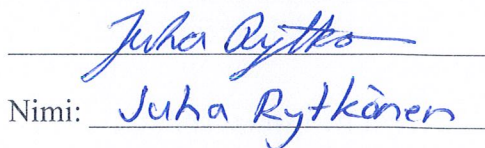 Juha Rytkö
Nimi: Juha Rytkönen